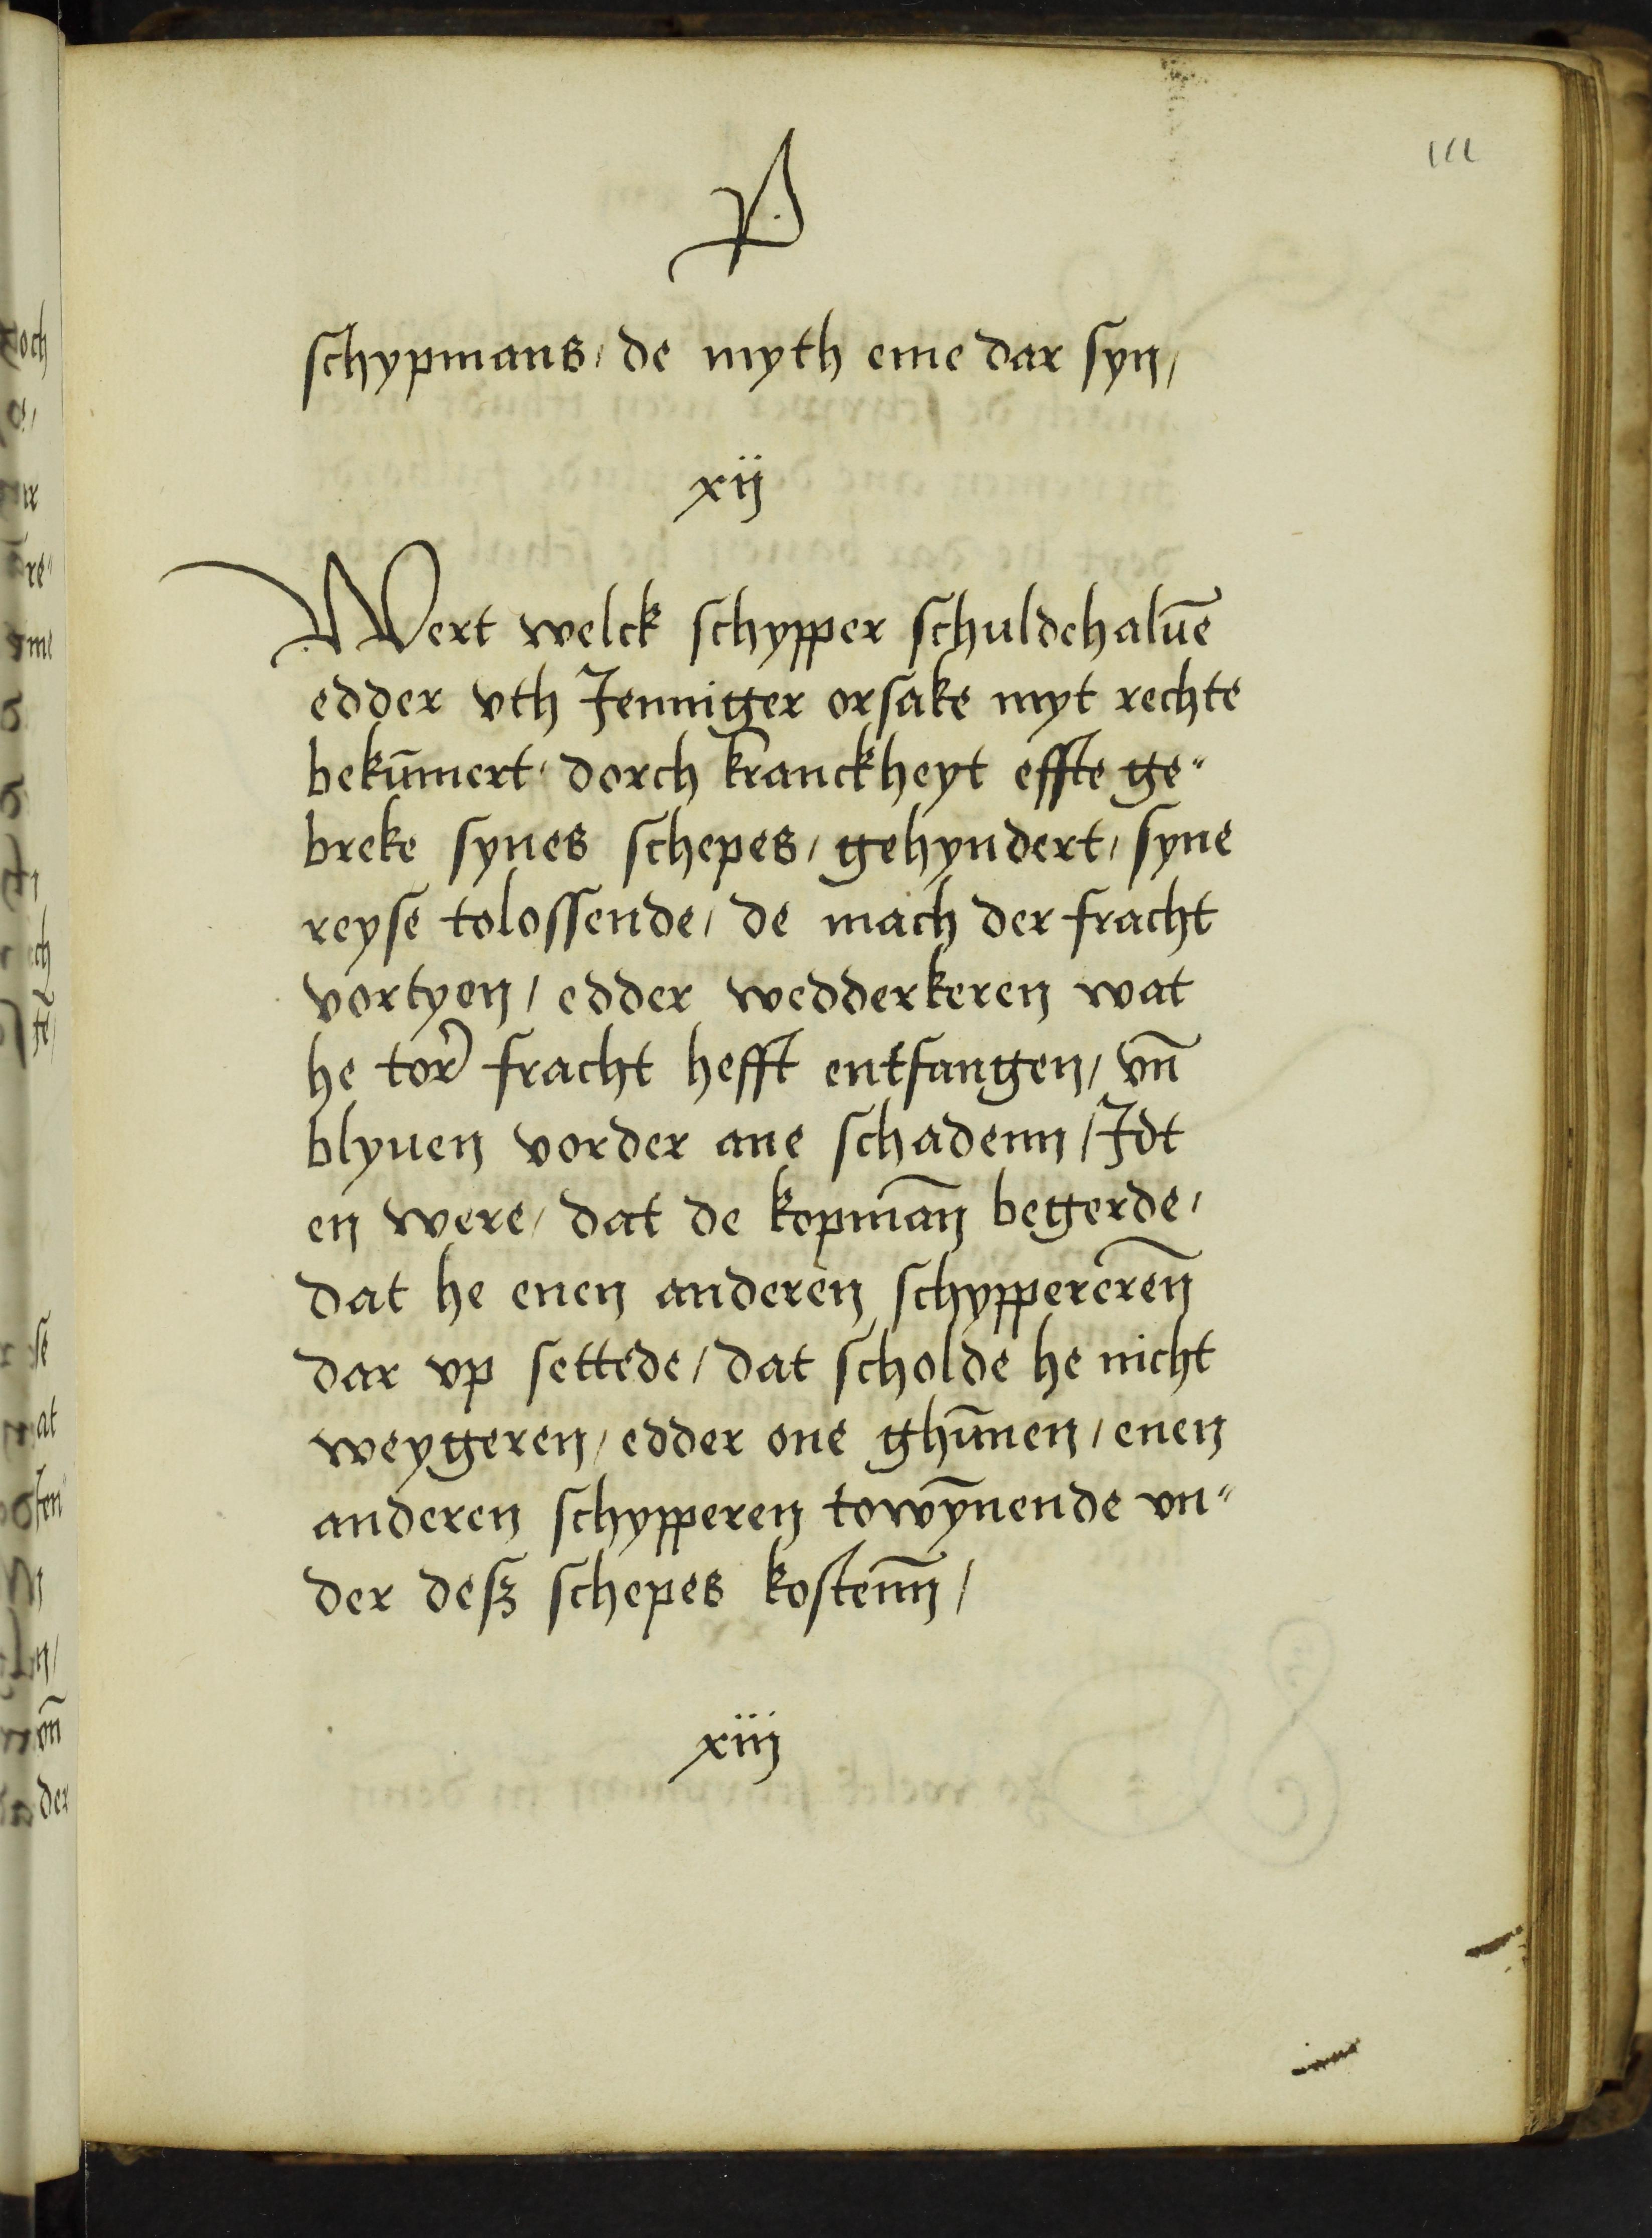 111
P
schypmans / de myth eme dar syn /
xij
Wert welck schypper schuldehaluē
edder vth Jenniger orsake myt rechte
bekūmert / dorch kranckheyt effte ge"
breke synes schepes / gehyndert / syne
reyse tolossende / de mach der fracht
vortyen / edder wedderkeren wat
he tor fracht hefft entfangen / vn̄
blyuen vorder ane schadenn / Jdt
en were / dat de kopmān begerde /
dat he enen anderen schyppererēn
dar vp settede / dat scholde he nicht
weygeren / edder one ghūnen / enen
anderen schypperen towȳnende vn"
der desz schepes kostenn̄ /
xiij